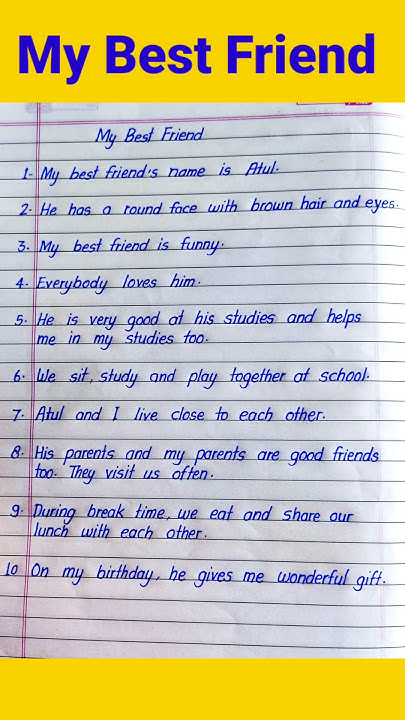 My Best Friend
My Best Friend
1- My best friend's name is Atul.
2. He has a round face with brown hair and eyes.
3. My best friend is funny.
4. Everybody loves him.
5. He is very good at his studies and helps
me in my studies too.
6. We sit, study and play together at school.
7. Atul and I live close to each other.
8. His parents and my parents are good friends
too. They visit us often.
9. During break time, we eat and share our
lunch with each other.
10 On my birthday, he gives me wonderful gift.